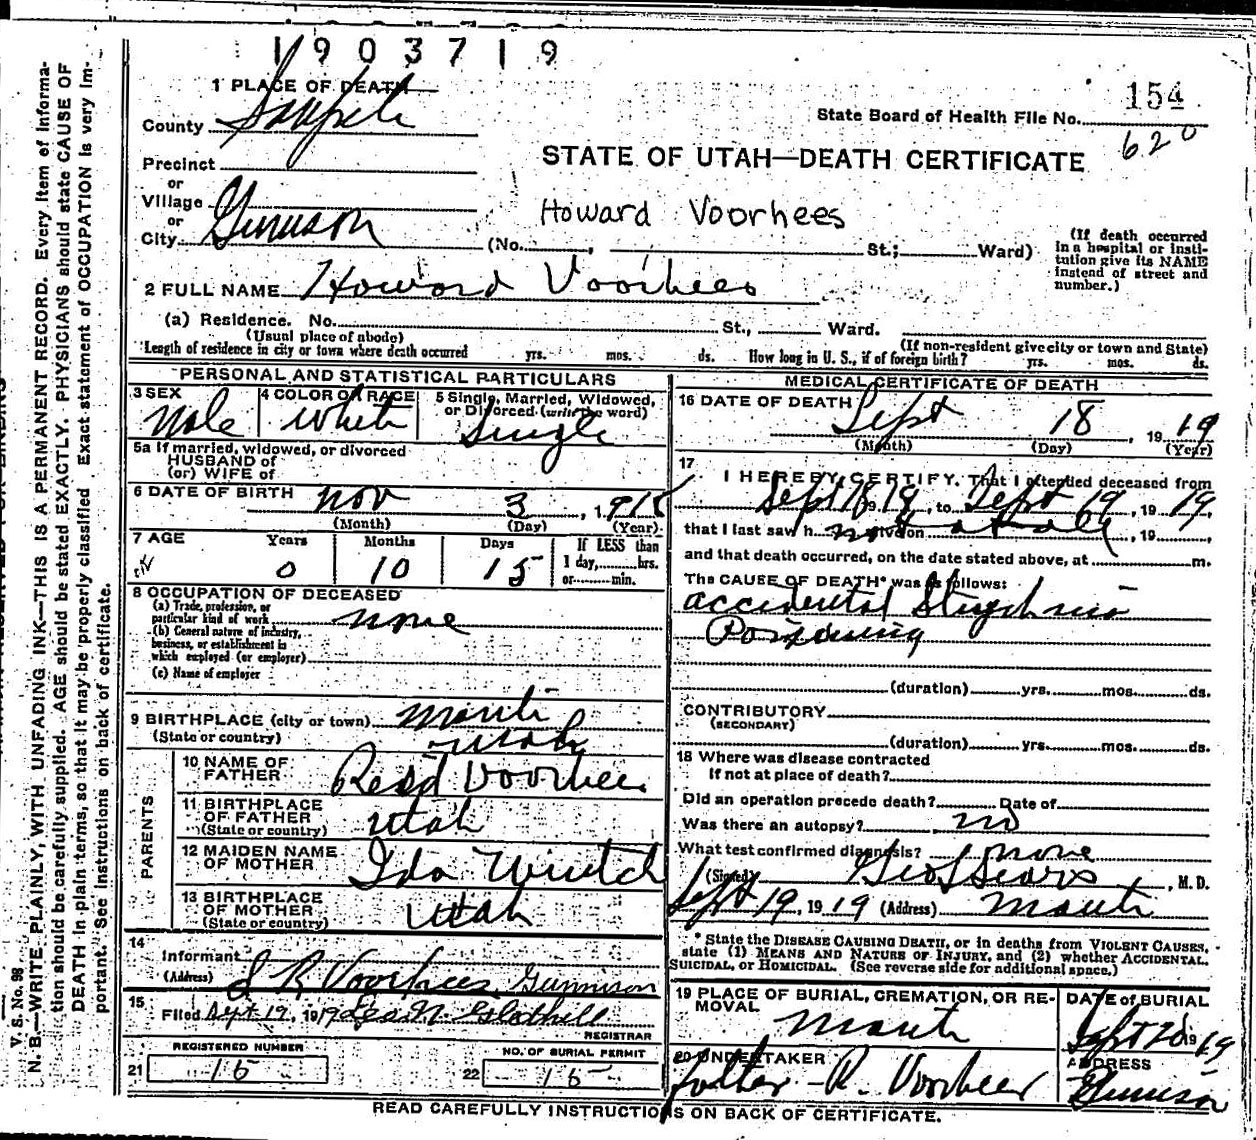 1903719
154
State Board of Health File No.
620
STATE OF UTAH—DEATH CERTIFICATE
1 PLACE OF DEATH
County Sanpete
Precinct
or
Village
or
City Gunnison
Howard Voorhees
(No. , St.; Ward)
(If death occurred
in a hospital or insti-
tution give its NAME
instead of street and
number.)
2 FULL NAME Howard Voorhees
(a) Residence. No. St., Ward.
(Usual place of abode) (If non-resident give city or town and State)
Length of residence in city or town where death occurred yrs. mos. ds. How long in U. S., if of foreign birth? yrs. mos. ds.
PERSONAL AND STATISTICAL PARTICULARS
3 SEX 4 COLOR OR RACE 5 Single, Married, Widowed,
or Divorced (write the word)
Male White Single
5a If married, widowed, or divorced
HUSBAND of
(or) WIFE of
6 DATE OF BIRTH Nov 3, 1918
(Month) (Day) (Year)
7 AGE Years Months Days If LESS than
1 day, hrs.
or min.
0 10 15
8 OCCUPATION OF DECEASED
(a) Trade, profession, or
particular kind of work none
(b) General nature of industry,
business, or establishment in
which employed (or employer)
(c) Name of employer
9 BIRTHPLACE (city or town) Manti
(State or country) Utah
PARENTS
10 NAME OF
FATHER Voorhees
11 BIRTHPLACE
OF FATHER Utah
(State or country)
12 MAIDEN NAME
OF MOTHER Ida
13 BIRTHPLACE
OF MOTHER Utah
(State or country)
14
Informant
(Address) J R Voorhees Gunnison
15
Filed Sept 19, 1919
REGISTRAR
REGISTERED NUMBER
21 15
NO. OF BURIAL PERMIT
22 15
MEDICAL CERTIFICATE OF DEATH
16 DATE OF DEATH Sept 18, 1919
(Month) (Day) (Year)
17
I HEREBY CERTIFY, That I attended deceased from
Sept 18 19, to Sept 19, 1919,
that I last saw h not alive on , 19 ,
and that death occurred, on the date stated above, at m.
The CAUSE OF DEATH* was as follows:
accidental Strychnin
Poisoning
(duration) yrs. mos. ds.
CONTRIBUTORY
(SECONDARY)
(duration) yrs. mos. ds.
18 Where was disease contracted
if not at place of death?
Did an operation precede death? Date of
Was there an autopsy? no
What test confirmed diagnosis? none
(Signed) Geo Sears, M. D.
Sept 19, 1919 (Address) Manti
* State the DISEASE CAUSING DEATH, or in deaths from VIOLENT CAUSES,
state (1) MEANS AND NATURE OF INJURY, and (2) whether ACCIDENTAL,
SUICIDAL, or HOMICIDAL. (See reverse side for additional space.)
19 PLACE OF BURIAL, CREMATION, OR RE-
MOVAL Manti
DATE of BURIAL
Sept 20 1919
20 UNDERTAKER
father - R. Voorhees
ADDRESS
Gunnison
READ CAREFULLY INSTRUCTIONS ON BACK OF CERTIFICATE.
V. S. No. 98
N. B.—WRITE PLAINLY, WITH UNFADING INK—THIS IS A PERMANENT RECORD. Every item of informa-
tion should be carefully supplied. AGE should be stated EXACTLY. PHYSICIANS should state CAUSE OF
DEATH in plain terms, so that it may be properly classified. Exact statement of OCCUPATION is very im-
portant. See instructions on back of certificate.